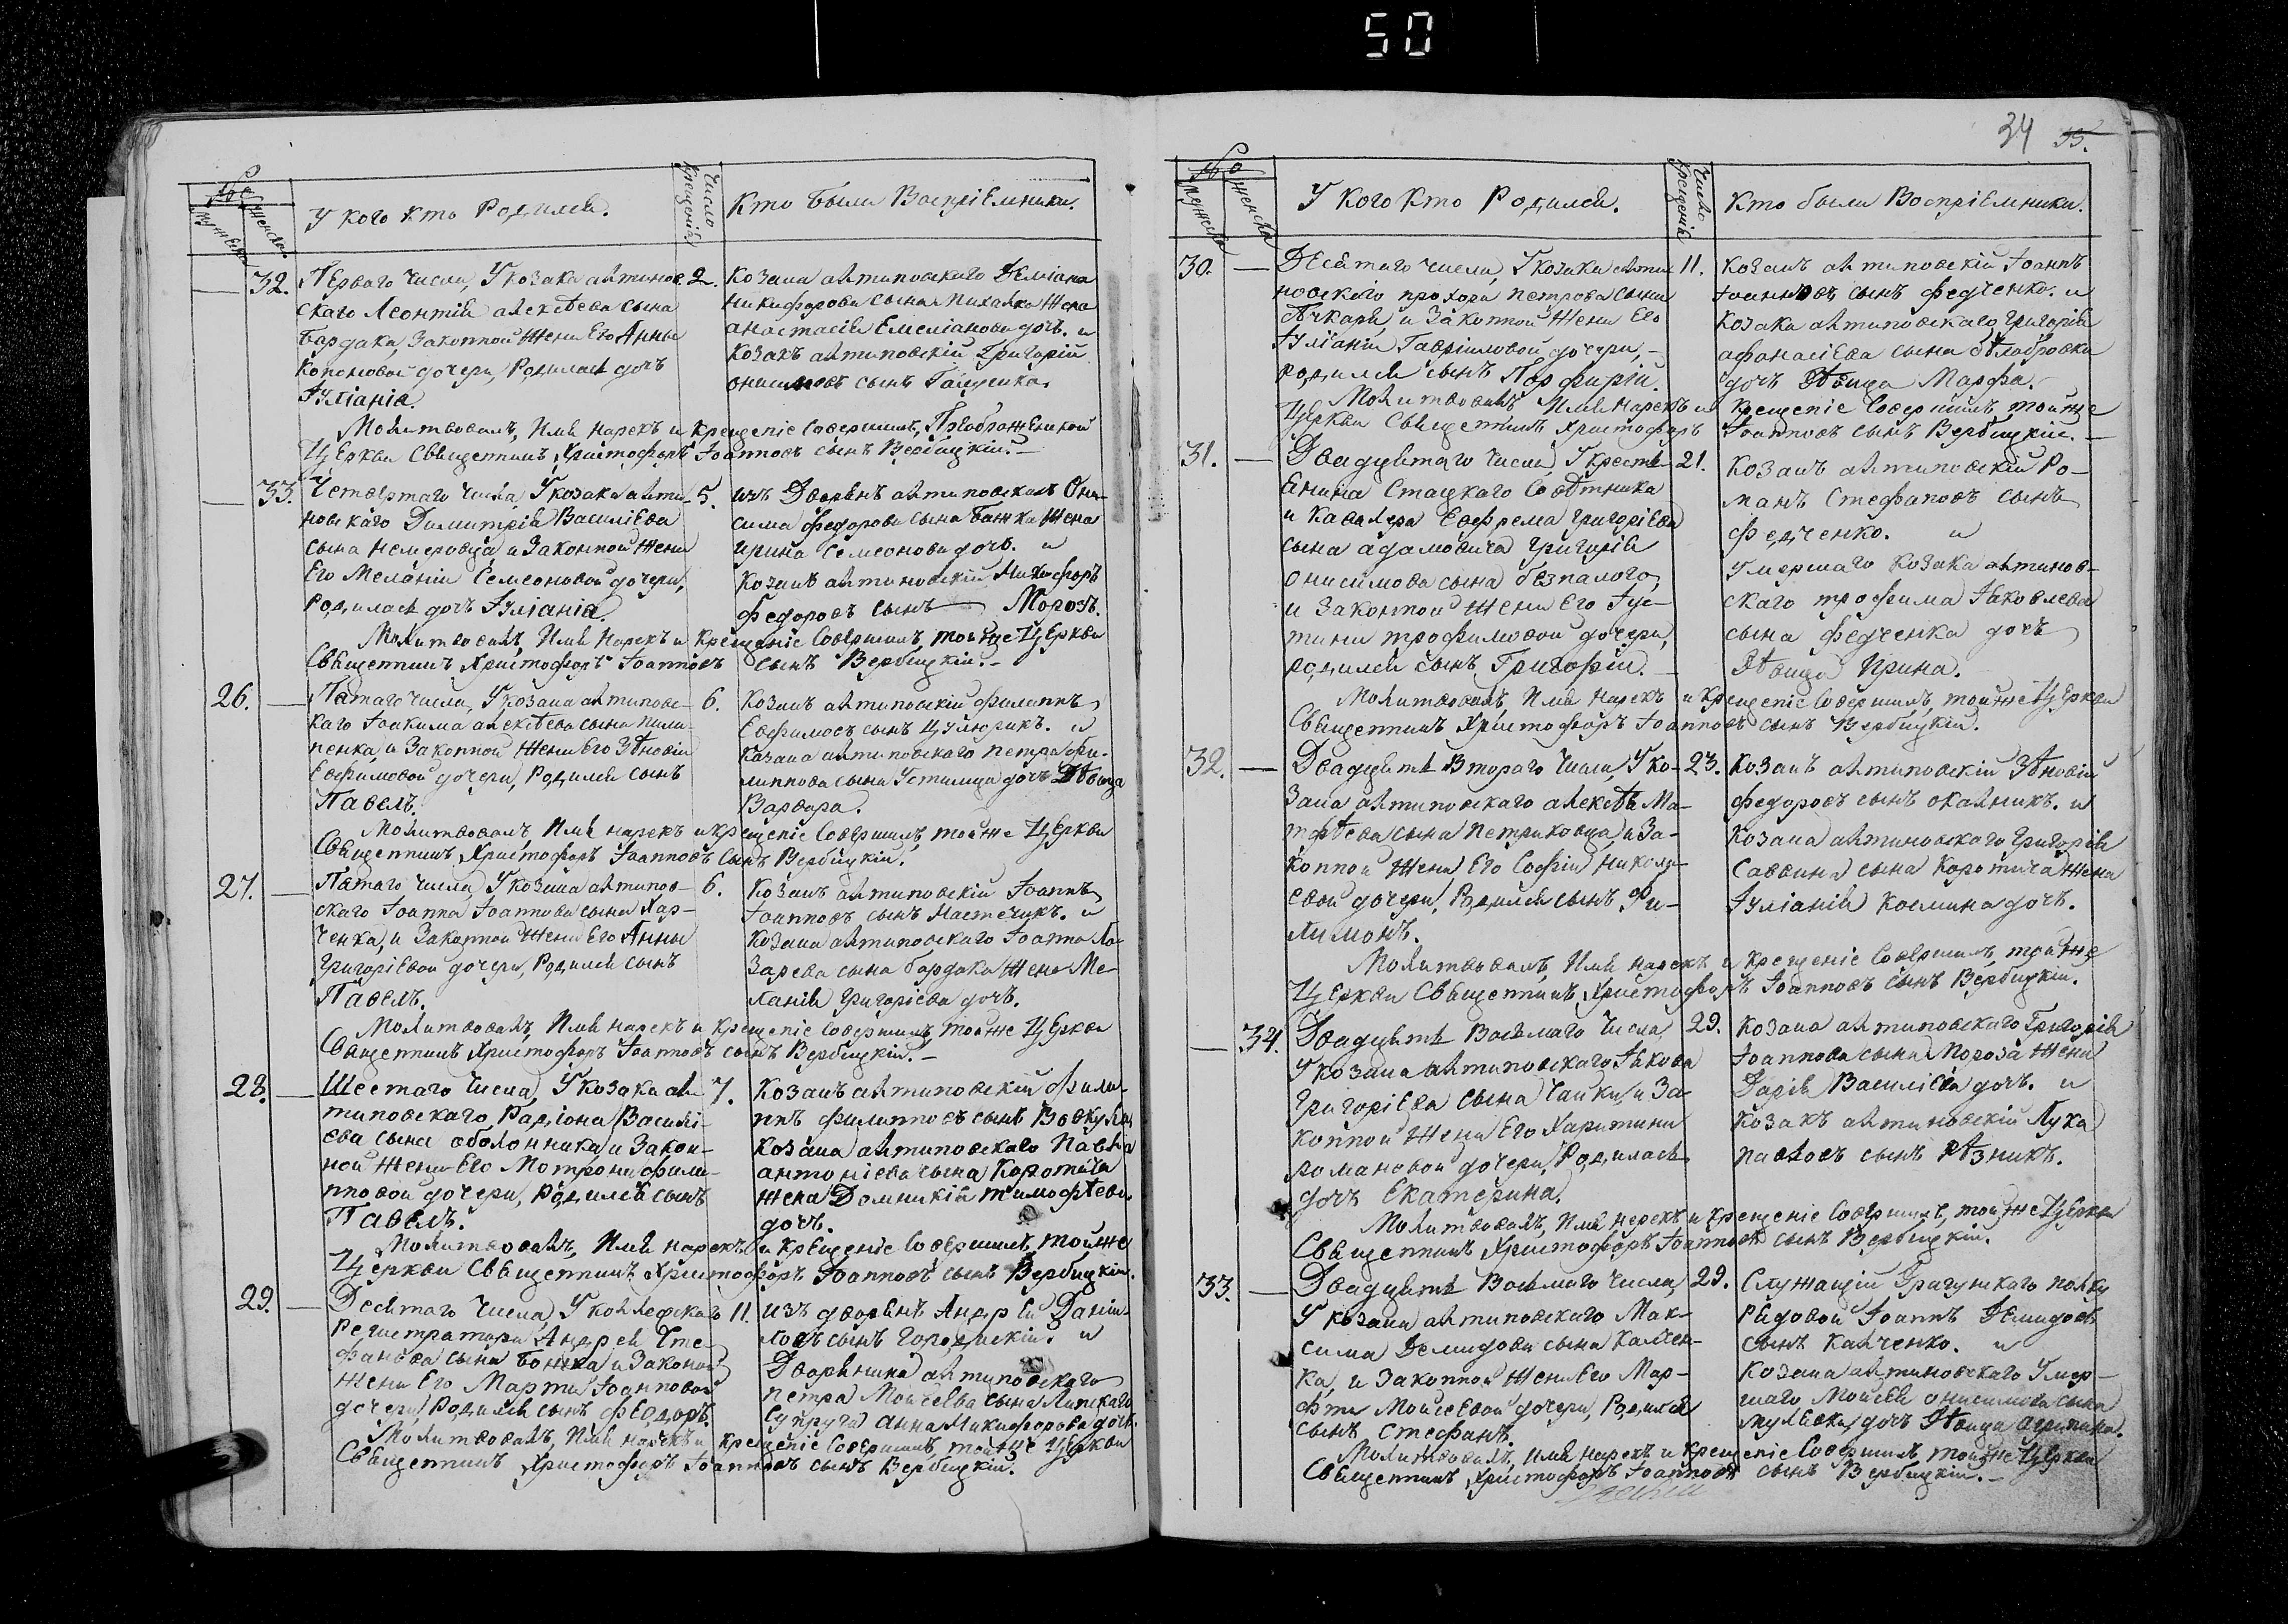 50
№
мужеска
женска
У кого кто Родился.
Число крещенія
Кто Были Воспріемники.
32.
Перваго числа, У козака алтинов-
скаго Леонтія алексѣева сына
Бардака, Законной Жены Его Анны
дочери, Родилась дочь
Іуліанія.
2.
Козака алтиновскаго Деміана
никифорова сына Михалка Жена
анастасія Емеліанова дочь. и
Козакъ алтиновскій Григорій
онисимовъ сынъ
Молитвовалъ, Имя нарекъ и Крещеніе Совершилъ, Преображенской
Церкви Священникъ Христофоръ Іоанновъ сынъ Вербицкій.
33.
Четвертаго числа, У козака алти-
новскаго Димитрія Василіева
сына немеровца и Законной Жены
Его Меланіи Семеоновой дочери,
Родилась дочь Іуліанія.
5.
изъ Дворянъ алтиновскихъ Они-
сима федорова сына Бажка Жена
ирина Семеонова дочь. и
Козакъ алтиновскій Никифоръ
федоровъ сынъ Морозъ.
Молитвовалъ, Имя Нарекъ и Крещеніе Совершилъ, тойже Церкви
Священникъ Христофоръ Іоанновъ сынъ Вербицкій.
26.
Пятаго числа, У козака алтиновс-
каго Іоакима алексѣева сына пили-
пенка, и Законной Жены Его Зѣновіи
Евфимовой дочери, Родился сынъ
Павелъ.
6.
Козакъ алтиновскій филиппъ
Евфимовъ сынъ Цуліорикъ. и
Козака алтиновскаго петра фи-
липпова сына Устимца дочь Дѣвица
Варвара.
Молитвовалъ, Имя нарекъ и Крещеніе Совершилъ, тойже Церкви
Священникъ Христофоръ Іоанновъ Сынъ Вербицкій.
27.
Пятаго числа, У козака алтинов-
скаго Іоанна Іоаннова сына Хар-
ченка, и Законной Жены Его Анны
Григоріевой дочери, Родился сынъ
Павелъ.
6.
Козакъ алтиновскій Іоаннъ
Іоанновъ сынъ Мастечикъ. и
Козака алтиновскаго Іоанна Ла-
зарева сына бардака Жена Ме-
ланія григоріева дочь.
Молитвовалъ, Имя нарекъ и Крещеніе Совершилъ, тойже Церкви
Священникъ Христофоръ Іоанновъ сынъ Вербицкій.
28.
Шестаго числа, У козака ал-
тиновскаго Радіона Василі-
ева сына оболонника, и Закон-
ной Жены Его Мотроны фили-
пповой дочери, Родился сынъ
Павелъ.
7.
Козакъ алтиновскій фили-
ппъ филипповъ сынъ
Козака алтиновскаго Павла
антоніева сына Коротича
Жена Домникія тимофѣева
дочь.
Молитвовалъ, Имя нарекъ и Крещеніе Совершилъ, тойже
Церкви Священникъ Христофоръ Іоанновъ сынъ Вербицкій.
29.
Десятаго числа, У коллежскаго
Регистратора Андрея Сте-
фанова сына Божка и Законой
Жены Его Марты Іоанновой
дочери, Родился сынъ Феодоръ.
11.
изъ дворянъ Андрей Даніи-
ловъ сынъ Городискій. и
Дворянина алтиновскаго
петра Моисеева сына
Супруга анна Никифорова дочь.
Молитвовалъ, Имя нарекъ и Крещеніе Совершилъ, тойже Церкви
Священникъ Христофоръ Іоанновъ сынъ Вербицкій.
34
35.
№
мужеска
женска
У Кого Кто Родился.
Число крещенія
Кто были Воспріемники.
30.
Десятаго числа, У козака алти-
новскаго прохора петрова сына
и Законной Жены Его
Іуліаніи Гавріиловой дочери,
родился сынъ Порфирій.
11.
Козакъ алтиновскій Іоаннъ
Іоанновъ сынъ федченко. и
Козака алтиновскаго Григорія
афанасіева сына бѣлобровки
дочь Дѣвица Марфа.
Молитвовалъ Имя Нарекъ и Крещеніе Совершилъ тойже
Церкви Священникъ Христофоръ Іоанновъ сынъ Вербицкій.
31.
Двадцятаго числа, У Крестя-
янина Стацкаго Совѣтника
и Кавалера Евфрема григоріева
сына адамовича григорія
онисимова сына безпалого,
и Законной Жены Его Іус-
тины трофимовой дочери,
родился сынъ Григорій.
21.
Козакъ алтиновскій Ро-
манъ Стефановъ сынъ
федченко. и
умершаго козака алтинов-
скаго трофима Іаковлева
сына федченка дочь
Дѣвица Ирина.
Молитвовалъ, Имя нарекъ и Крещеніе Совершилъ, тойже Церкви
Священникъ Христофоръ Іоанновъ сынъ Вербицкій.
32.
Двадцять Втораго числа, У ко-
зака алтиновскаго алексѣя Ма-
тфѣева сына петриковца, и За-
конной Жены Его Софіи никола-
евой дочери, Родился сынъ Фи-
лимонъ.
23.
Козакъ алтиновскій Зѣновій
федоровъ сынъ окаяникъ. и
Козака алтиновскаго григорія
Саввина сына Коротича Жена
Іуліанія Космина дочь.
Молитвовалъ, Имя нарекъ и крещеніе Совершилъ, тойже
Церкви Священникъ Христофоръ Іоанновъ сынъ Вербицкій.
34.
Двадцять Восьмаго числа
У козака алтиновскаго Іакова
григоріева сына Чайки, и За-
конной Жены Его Харитины
романовой дочери, Родилась
дочь Екатерина.
29.
Козака алтиновскаго Григорія
Іоаннова сына Мороза Жена
Дарія Василіева дочь. и
Козакъ алтиновскій Лука
павловъ сынъ Рѣзникъ.
Молитвовалъ, Имя нарекъ и Крещеніе Совершилъ, тойже Церкви
Священникъ Христофоръ Іоанновъ сынъ Вербицкій.
33.
Двадцять Восьмаго числа,
У козака алтиновскаго Мак-
сима Демидова сына Калчен-
ка, и Законной Жены Его Мар-
фы Моисеевой дочери, Родился
сынъ Стефанъ.
29.
Служащій Драгунскаго полку
Рядовой Іоаннъ Демидовъ
сынъ Калченко. и
Козака алтиновскаго Умер-
шаго Моисея онисимова сына
дочь Дѣвица агрипина.
Молитвовалъ, Имя Нарекъ и Крещеніе Совершилъ, тойже Церкви
Священникъ Христофоръ Іоанновъ сынъ Вербицкій.